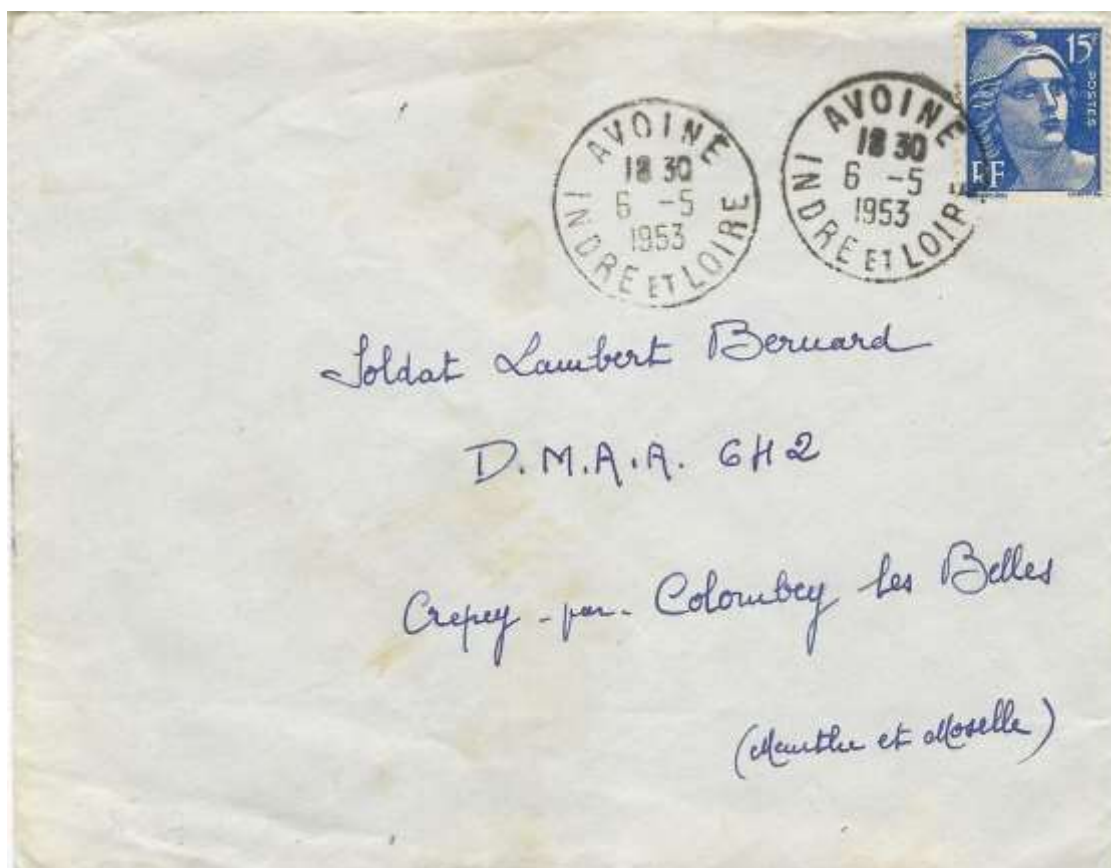 15F
POSTES
RF
AVOINE
18 30
6 -5
1953
INDRE ET LOIRE
AVOINE
18 30
6 -5
1953
INDRE ET LOIRE
Soldat Lambert Bernard
D.M.A.A. 6H2
Crepey - par - Colombey les Belles
(Meurthe et Moselle)